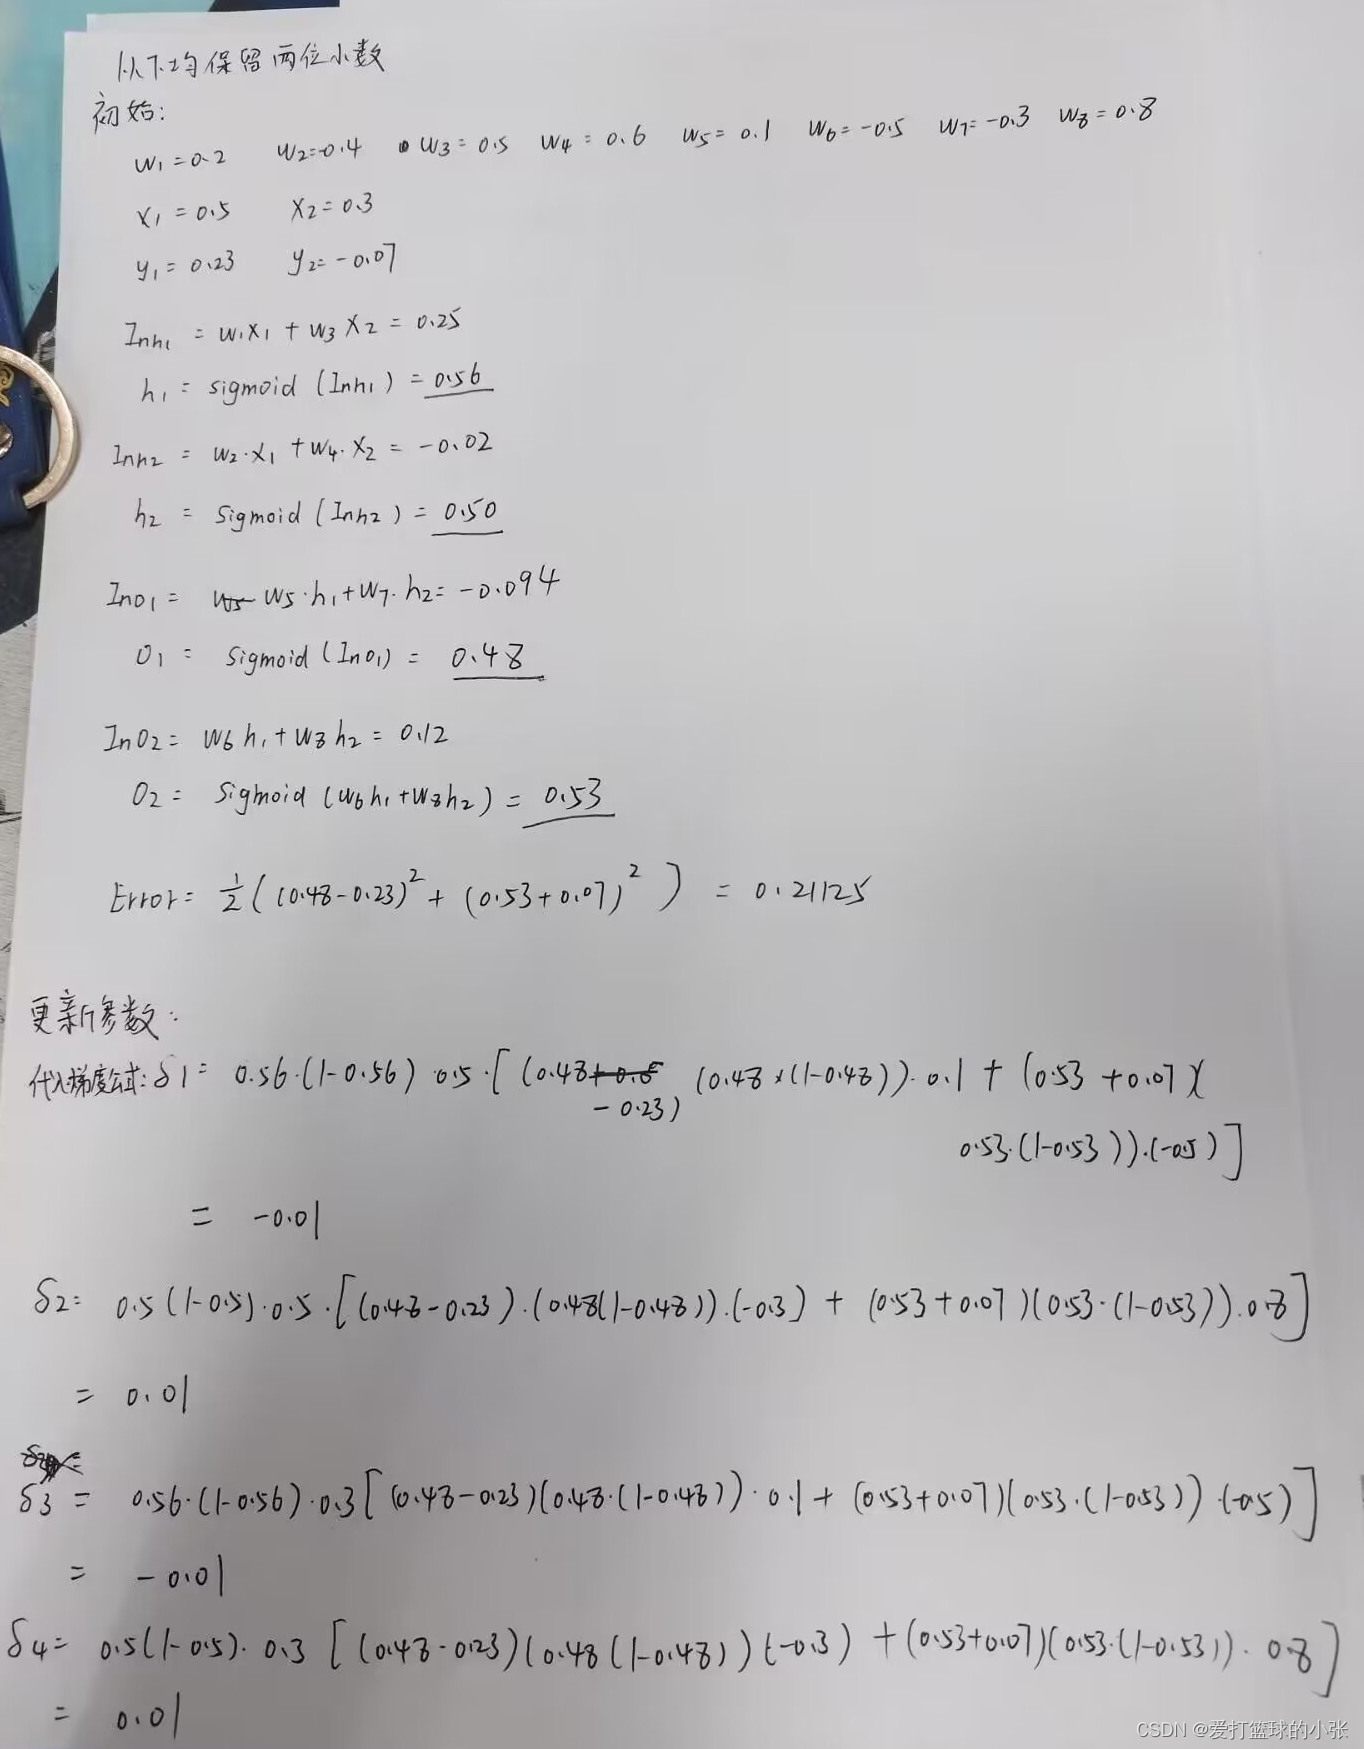 以下均保留两位小数
初始:
w1=0.2 w2=-0.4 w3=0.5 w4=0.6 w5=0.1 w6=-0.5 w7=-0.3 w8=0.8
x1=0.5 x2=0.3
y1=0.23 y2=-0.07
Inh1 = w1x1+w3x2=0.25
h1=sigmoid(Inh1)=0.56
Inh2 = w2·x1+w4·x2=-0.02
h2 = sigmoid(Inh2)=0.50
Ino1= w5 w5·h1+w7·h2=-0.094
O1= sigmoid(Ino1)= 0.48
InO2= w6h1+w8h2=0.12
O2= sigmoid(w6h1+w8h2)=0.53
Error= 1/2((0.48-0.23)²+(0.53+0.07)²) = 0.21125
更新参数:
代入梯度公式:δ1= 0.56·(1-0.56)·0.5·[(0.48 (0.48×(1-0.48))·0.1+(0.53+0.07)(
-0.23)
0.53·(1-0.53))·(-0.5)]
= -0.01
δ2= 0.5(1-0.5)·0.5·[(0.48-0.23)·(0.48(1-0.48))·(-0.3)+(0.53+0.07)(0.53·(1-0.53))·0.8]
= 0.01
δ3= 0.56·(1-0.56)·0.3[(0.48-0.23)(0.48·(1-0.48))·0.1+(0.53+0.07)(0.53·(1-0.53))·(-0.5)]
= -0.01
δ4= 0.5(1-0.5)·0.3[(0.48-0.23)(0.48(1-0.48))(-0.3)+(0.53+0.07)(0.53·(1-0.53))·0.8]
= 0.01
CSDN @爱打篮球的小张